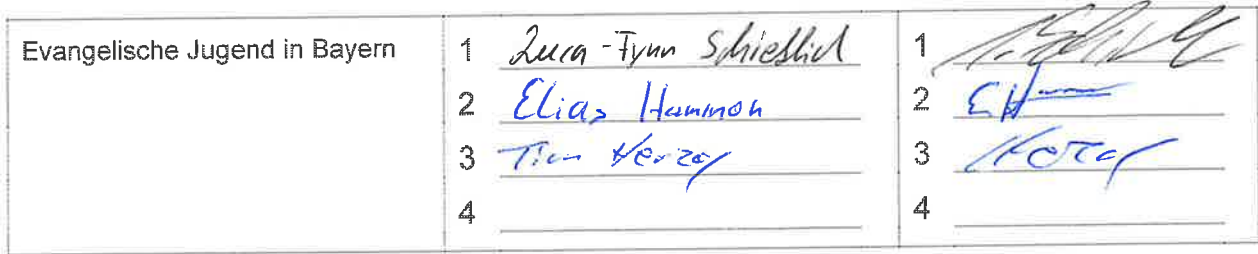 Evangelische Jugend in Bayern
1 Luca-Fynn Schieblich
2 Elias Hammon
3 Tim Herzog
4
1
2
3 Herzog
4